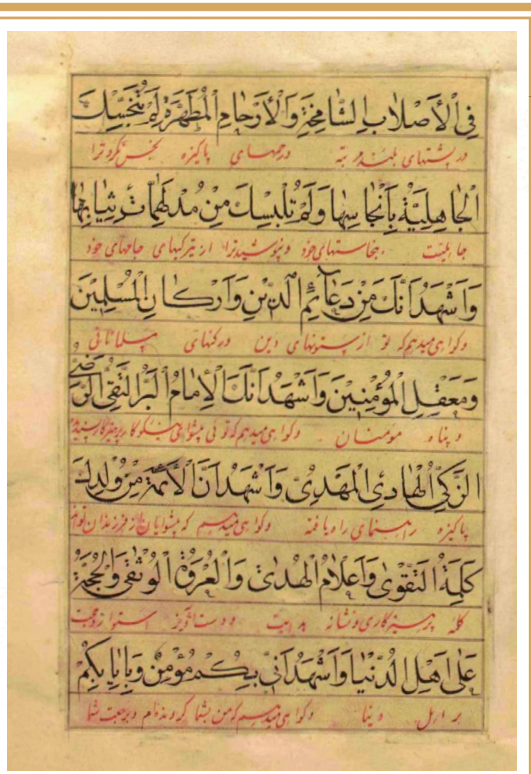 فِي الْأَصْلَابِ الشَّامِخَةِ وَالْأَرْحَامِ الْمُطَهَّرَةِ لَمْ تُنَجِّسْكَ
در پشتهای بلند مرتبه و رحمهای پاکیزه نجس نکرد ترا
الْجَاهِلِيَّةُ بِأَنْجَاسِهَا وَلَمْ تُلْبِسْكَ مِنْ مُدْلَهِمَّاتِ ثِيَابِهَا
جاهلیت بنجاستهای خود و نپوشید ترا از تیرکیهای جامهای خود
وَأَشْهَدُ أَنَّكَ مِنْ دَعَائِمِ الدِّينِ وَأَرْكَانِ الْمُسْلِمِينَ
و کواهی میدهم که تو از ستونهای دین و رکنهای مسلمانانی
وَمَعْقِلِ الْمُؤْمِنِينَ وَأَشْهَدُ أَنَّكَ الْإِمَامُ الْبَرُّ التَّقِيُّ الرَّضِيُّ
و پناه مؤمنان و کواهی میدهم که توئی پیشوای نیکوکار پرهیزکار پسندیده
الزَّكِيُّ الْهَادِي الْمَهْدِيُّ وَأَشْهَدُ أَنَّ الْأَئِمَّةَ مِنْ وُلْدِكَ
پاکیزه راهنمای راه یافته و کواهی میدهم که پیشوایان از فرزندان تواند
كَلِمَةُ التَّقْوَى وَأَعْلَامُ الْهُدَى وَالْعُرْوَةُ الْوُثْقَى وَالْحُجَّةُ
کلمه پرهیزکاری و نشانه هدایت و دست آویز استوار و حجت
عَلَى أَهْلِ الدُّنْيَا وَأَشْهَدُ أَنِّي بِكُمْ مُؤْمِنٌ وَبِإِيَابِكُمْ
بر اهل دنیا و کواهی میدهم که من بشما کرویده‌ام و برجعت شما